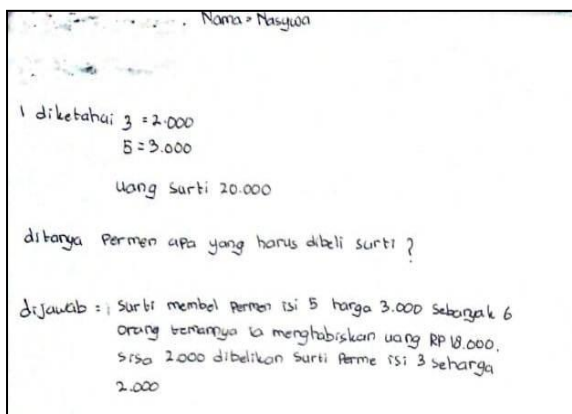 Nama = Nasywa
1 diketahui 3 = 2.000
5 = 3.000
uang surti 20.000
ditanya Permen apa yang harus dibeli surti ?
dijawab = ; Surti membel permen isi 5 harga 3.000 sebanyak 6
orang temannya ia menghabiskan uang RP 18.000.
sisa 2.000 dibelikan surti Perme isi 3 seharga
2.000